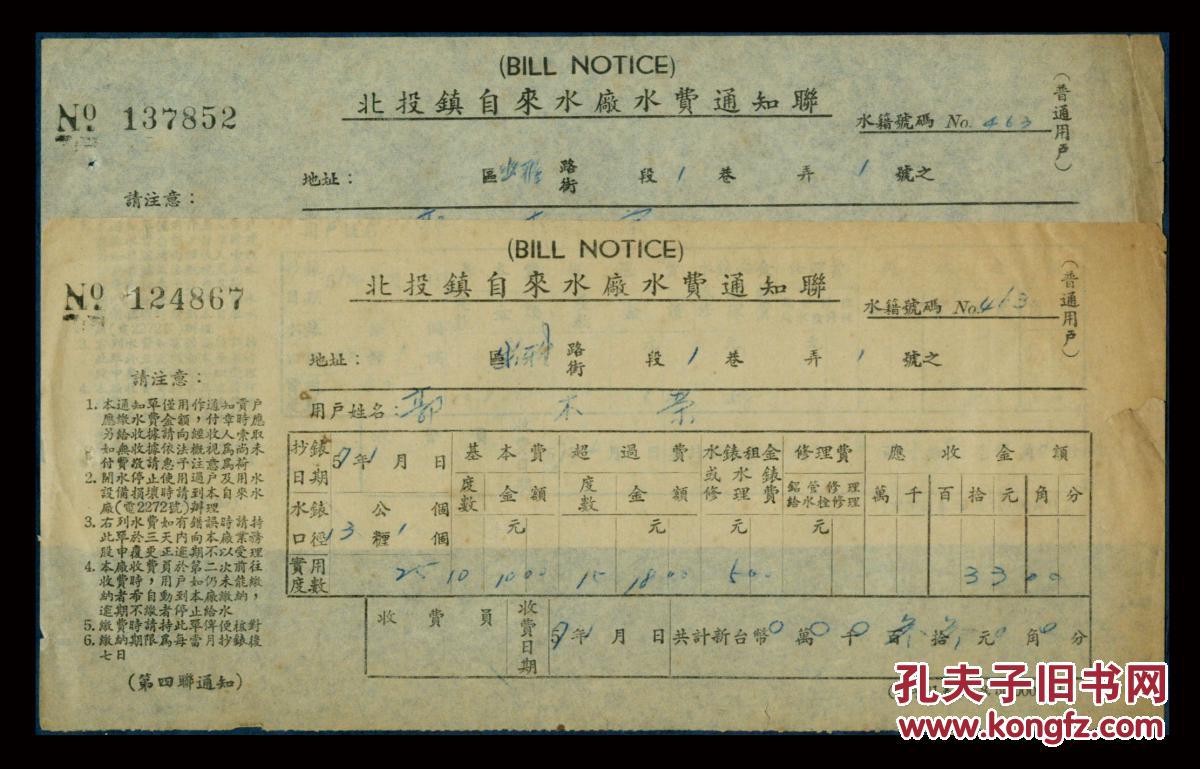 (BILL NOTICE)
北投鎮自來水廠水費通知聯
(普通用戶)
No 137852
水籍號碼 No. 463
地址： 區 路街 段 1 巷 弄 1 號之
請注意：
(BILL NOTICE)
北投鎮自來水廠水費通知聯
(普通用戶)
No 124867
水籍號碼 No. 463
地址： 區 路街 段 1 巷 弄 1 號之
請注意：
用戶姓名：郭木榮
1. 本通知單僅用作通知貴戶
應繳水費金額，付章時應
另給收據請向經收人索取
如無收據請依法概視為未
付費敬請予注意為荷
2. 開水收息使過戶及用水
設備停止損壞時請到本自來水
廠(電2272號)辦理
3. 右列水費如有錯誤時請持
此單於三天內向本廠業務
股申覆更正逾期不以受理
4. 本廠收費員於第二次前往
收費時，用戶如仍未能繳
納者希自動到本廠繳納，
逾期不繳者停止給水
5. 繳費時請持此單俾便核對
6. 繳納期限為每當月抄錶後
七日
(第四聯通知)
抄錶日期 57年1月 日
基本費 度數 金額
超過費 度數 金額
水錶租金或水錶修理費
修理費 鉛管修理 給水栓修理
應收金額 萬 千 百 拾 元 角 分
水錶口徑 公 個
13 糎 1 個
元 元 元
實用度數 25 10 1000 15 1800 500 3300
收費員
收費日期 57年1月 日
共計新台幣 0 萬 0 千 0 百 拾 元 0 角 0 分
孔夫子旧书网
www.kongfz.com